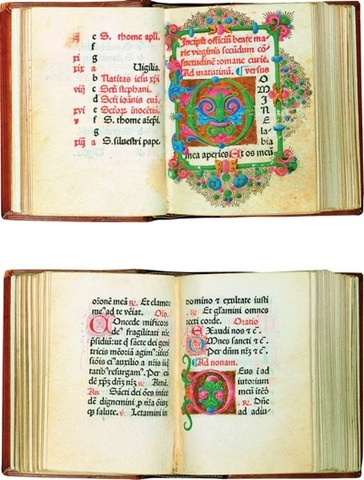 e S. thome apli.
f
xi g
xix a Vigilia.
b Natiṽtas iesu xp̄i
viii c Scti stephani.
d Scti ioānis euā.
xvi e Sctorꝝ inocētiū
v f S. thome arc̄epi.
g
xiii a S. siluestri pape.
Incipit officiū beate marie
virginis secūdum cō
suetudinē romane curie.
Ad matutinū. versus
DOMINE
labia
mea aperies Et os meū
oronē meā ℟. Et clamor
meꝰ ad te vēiat. Oro.
Concede misericors
deꝰ fragilitati nr̄e
p̄sidiū: ut q̄ sācte dei geni
tricis mēoriā agimꝰ: īterces
sidīs eiꝰ auxilio a nr̄is iniq
tatibꝰ resurgam. Per eū
dē xp̄z dn̄z nr̄z ℟. Amē.
An̄. Sācti dei oēs inter
dē dignemini p nr̄a oīuꝫ
qꝫ salute. ℣. Letamini in
domino ⁊ exultate iusti
℟. Et gl̄amini omnes
recti corde. Oratio
Exaudi nos ⁊ c̄.
Omnes sancti ⁊ c̄.
Per dn̄m nr̄z ⁊ c̄.
Ad nonam.
Deus ī ad
iutorium
meū ītēde
℟. Dn̄e
ad adiu